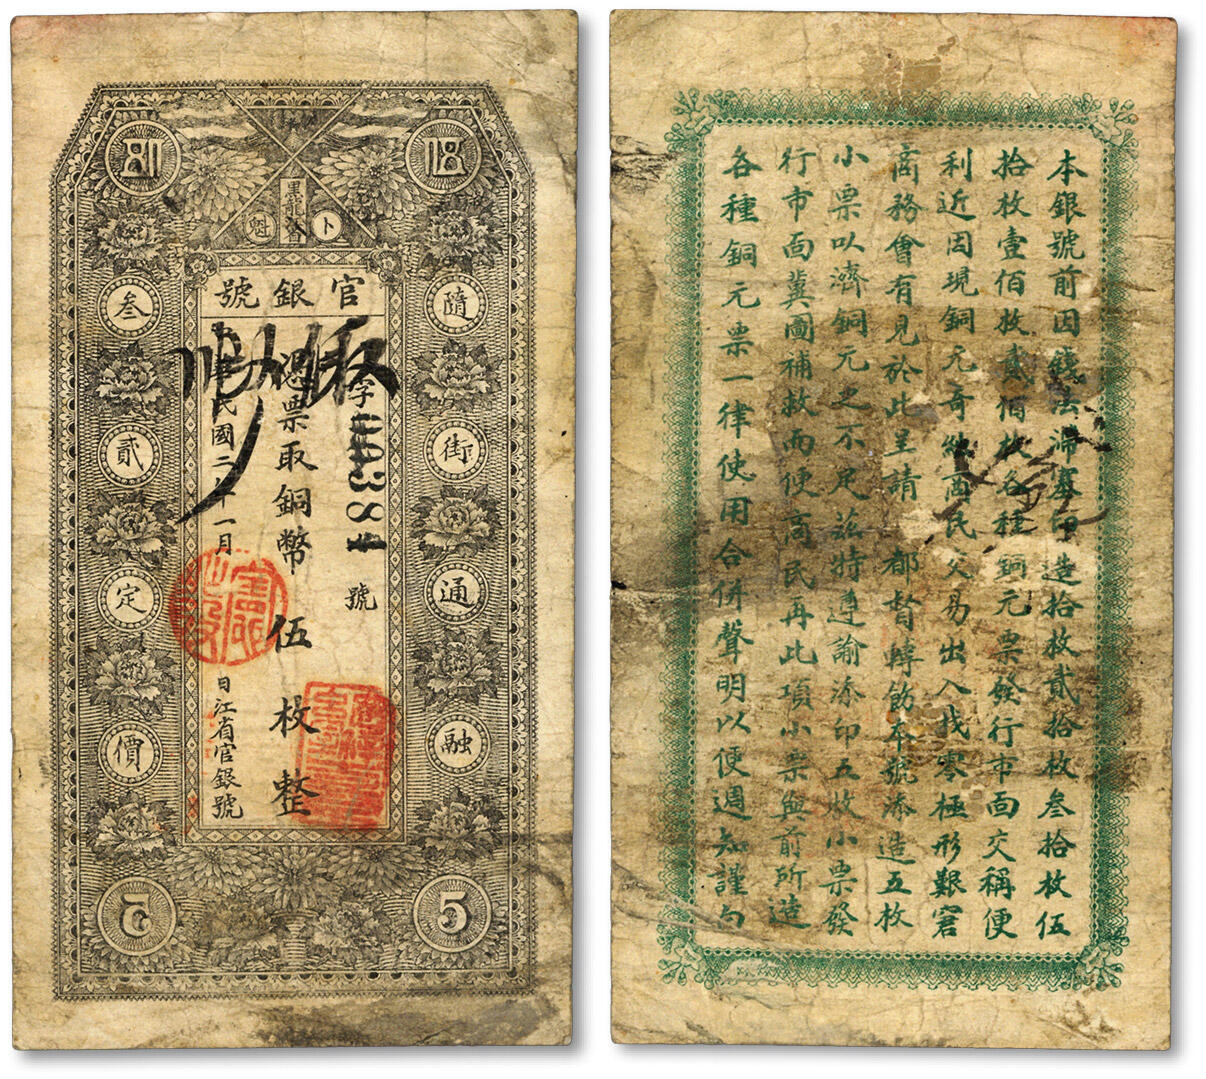 卜魁
官銀號
隨街通融
叁貳定價
字 號
憑票取銅幣伍枚整
民國二年一月 日江省官銀號
5
5
本銀號前因錢法滯塞印造拾枚貳拾枚叁拾枚伍
拾枚壹佰枚貳佰枚各種銅元票發行市面交稱便
利近因現銅元奇絀商民交易出入找零極形艱窘
商務會有見於此呈請 都督轉飭本號添造五枚
小票以濟銅元之不足茲特遵諭添印五枚小票發
行市面冀圖補救而便商民再此項小票與前所造
各種銅元票一律使用合併聲明以便週知謹